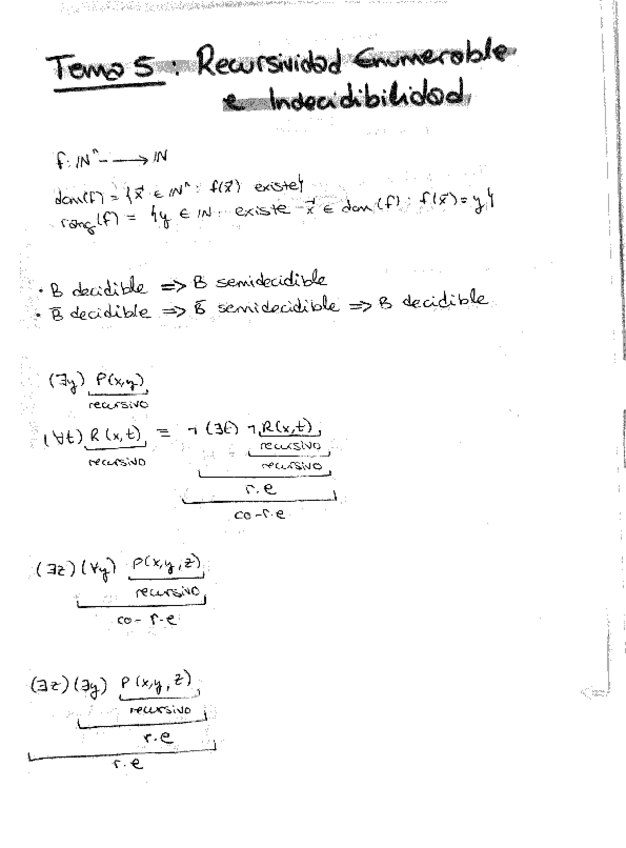 Tema 5: Recursividad Enumerable
e Indecidibilidad
f: ℕⁿ --→ ℕ
dom(f) = {x⃗ ∈ ℕⁿ : f(x⃗) existe}
rang(f) = {y ∈ ℕ : existe x⃗ ∈ dom(f) : f(x⃗) = y}
• B decidible => B semidecidible
• B̄ decidible => B̄ semidecidible => B decidible
(∃y) P(x,y)
recursivo
(∀t) R(x,t) = ¬(∃t) ¬R(x,t)
recursivo recursivo
recursivo
r.e
co-r.e
(∃z)(∀y) P(x,y,z)
recursivo
co-r.e
(∃z)(∃y) P(x,y,z)
recursivo
r.e
r.e